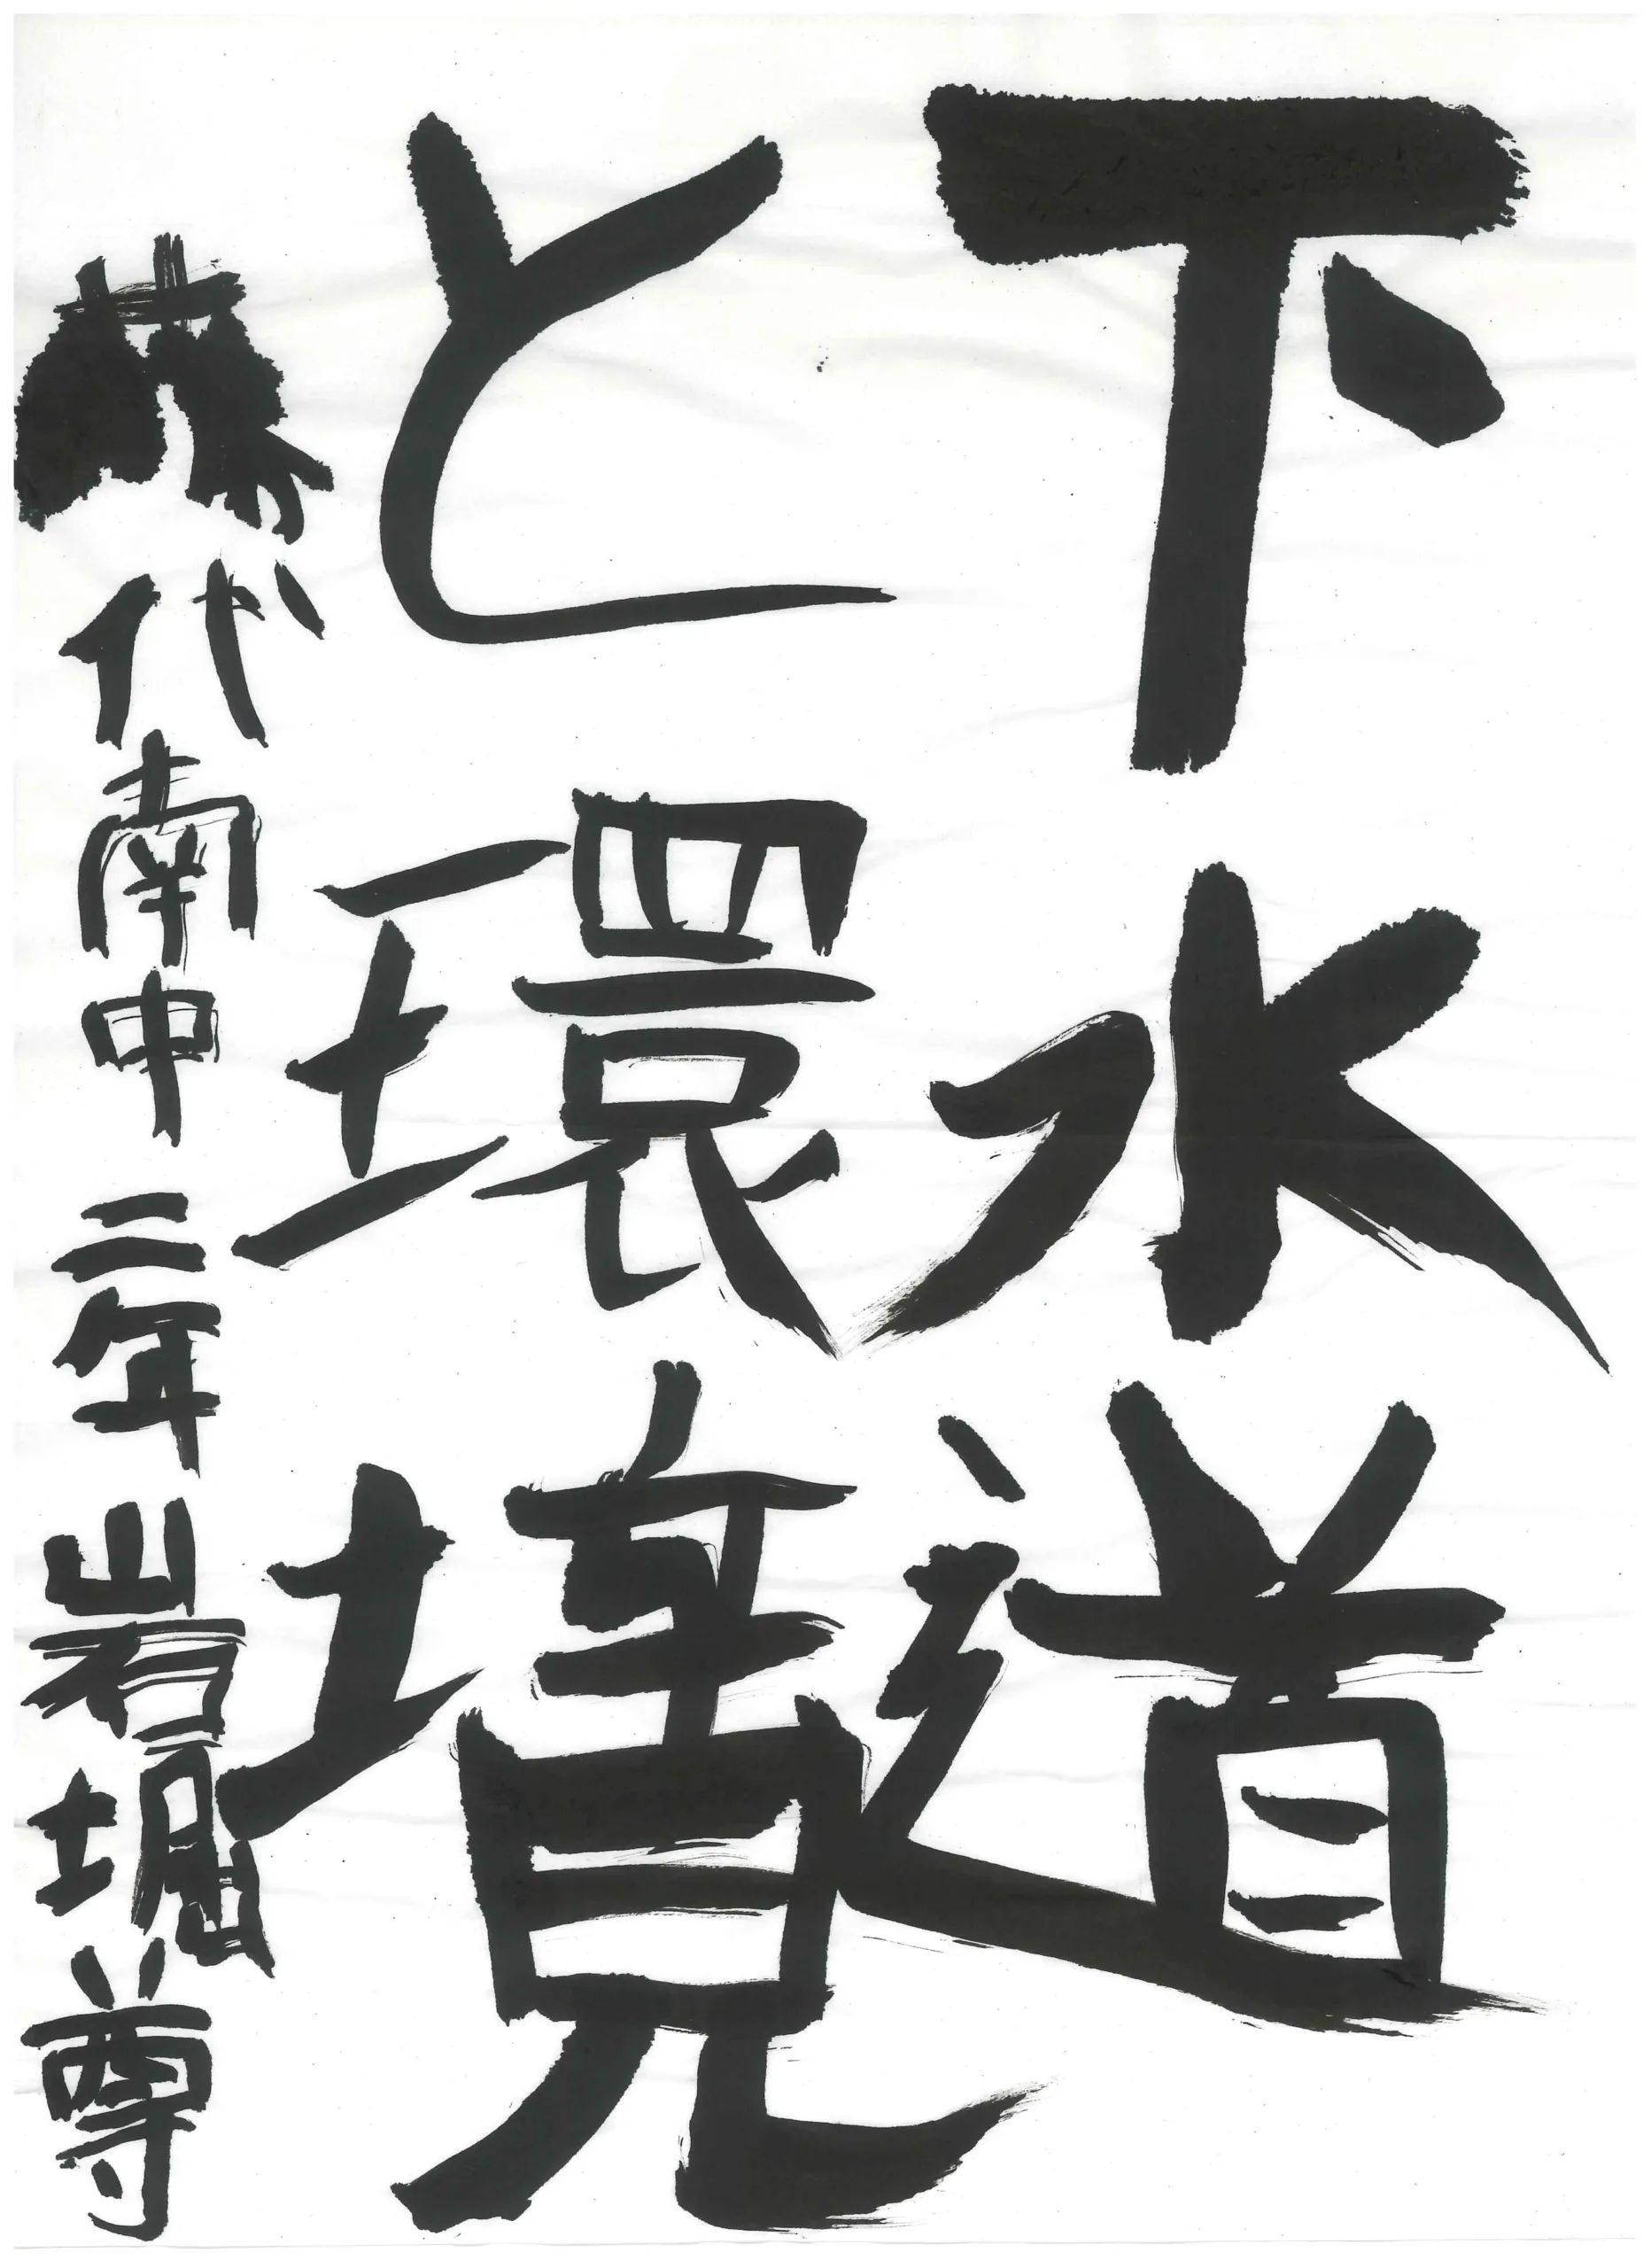 下水道
と環境
代南中 二年 岩堀尊